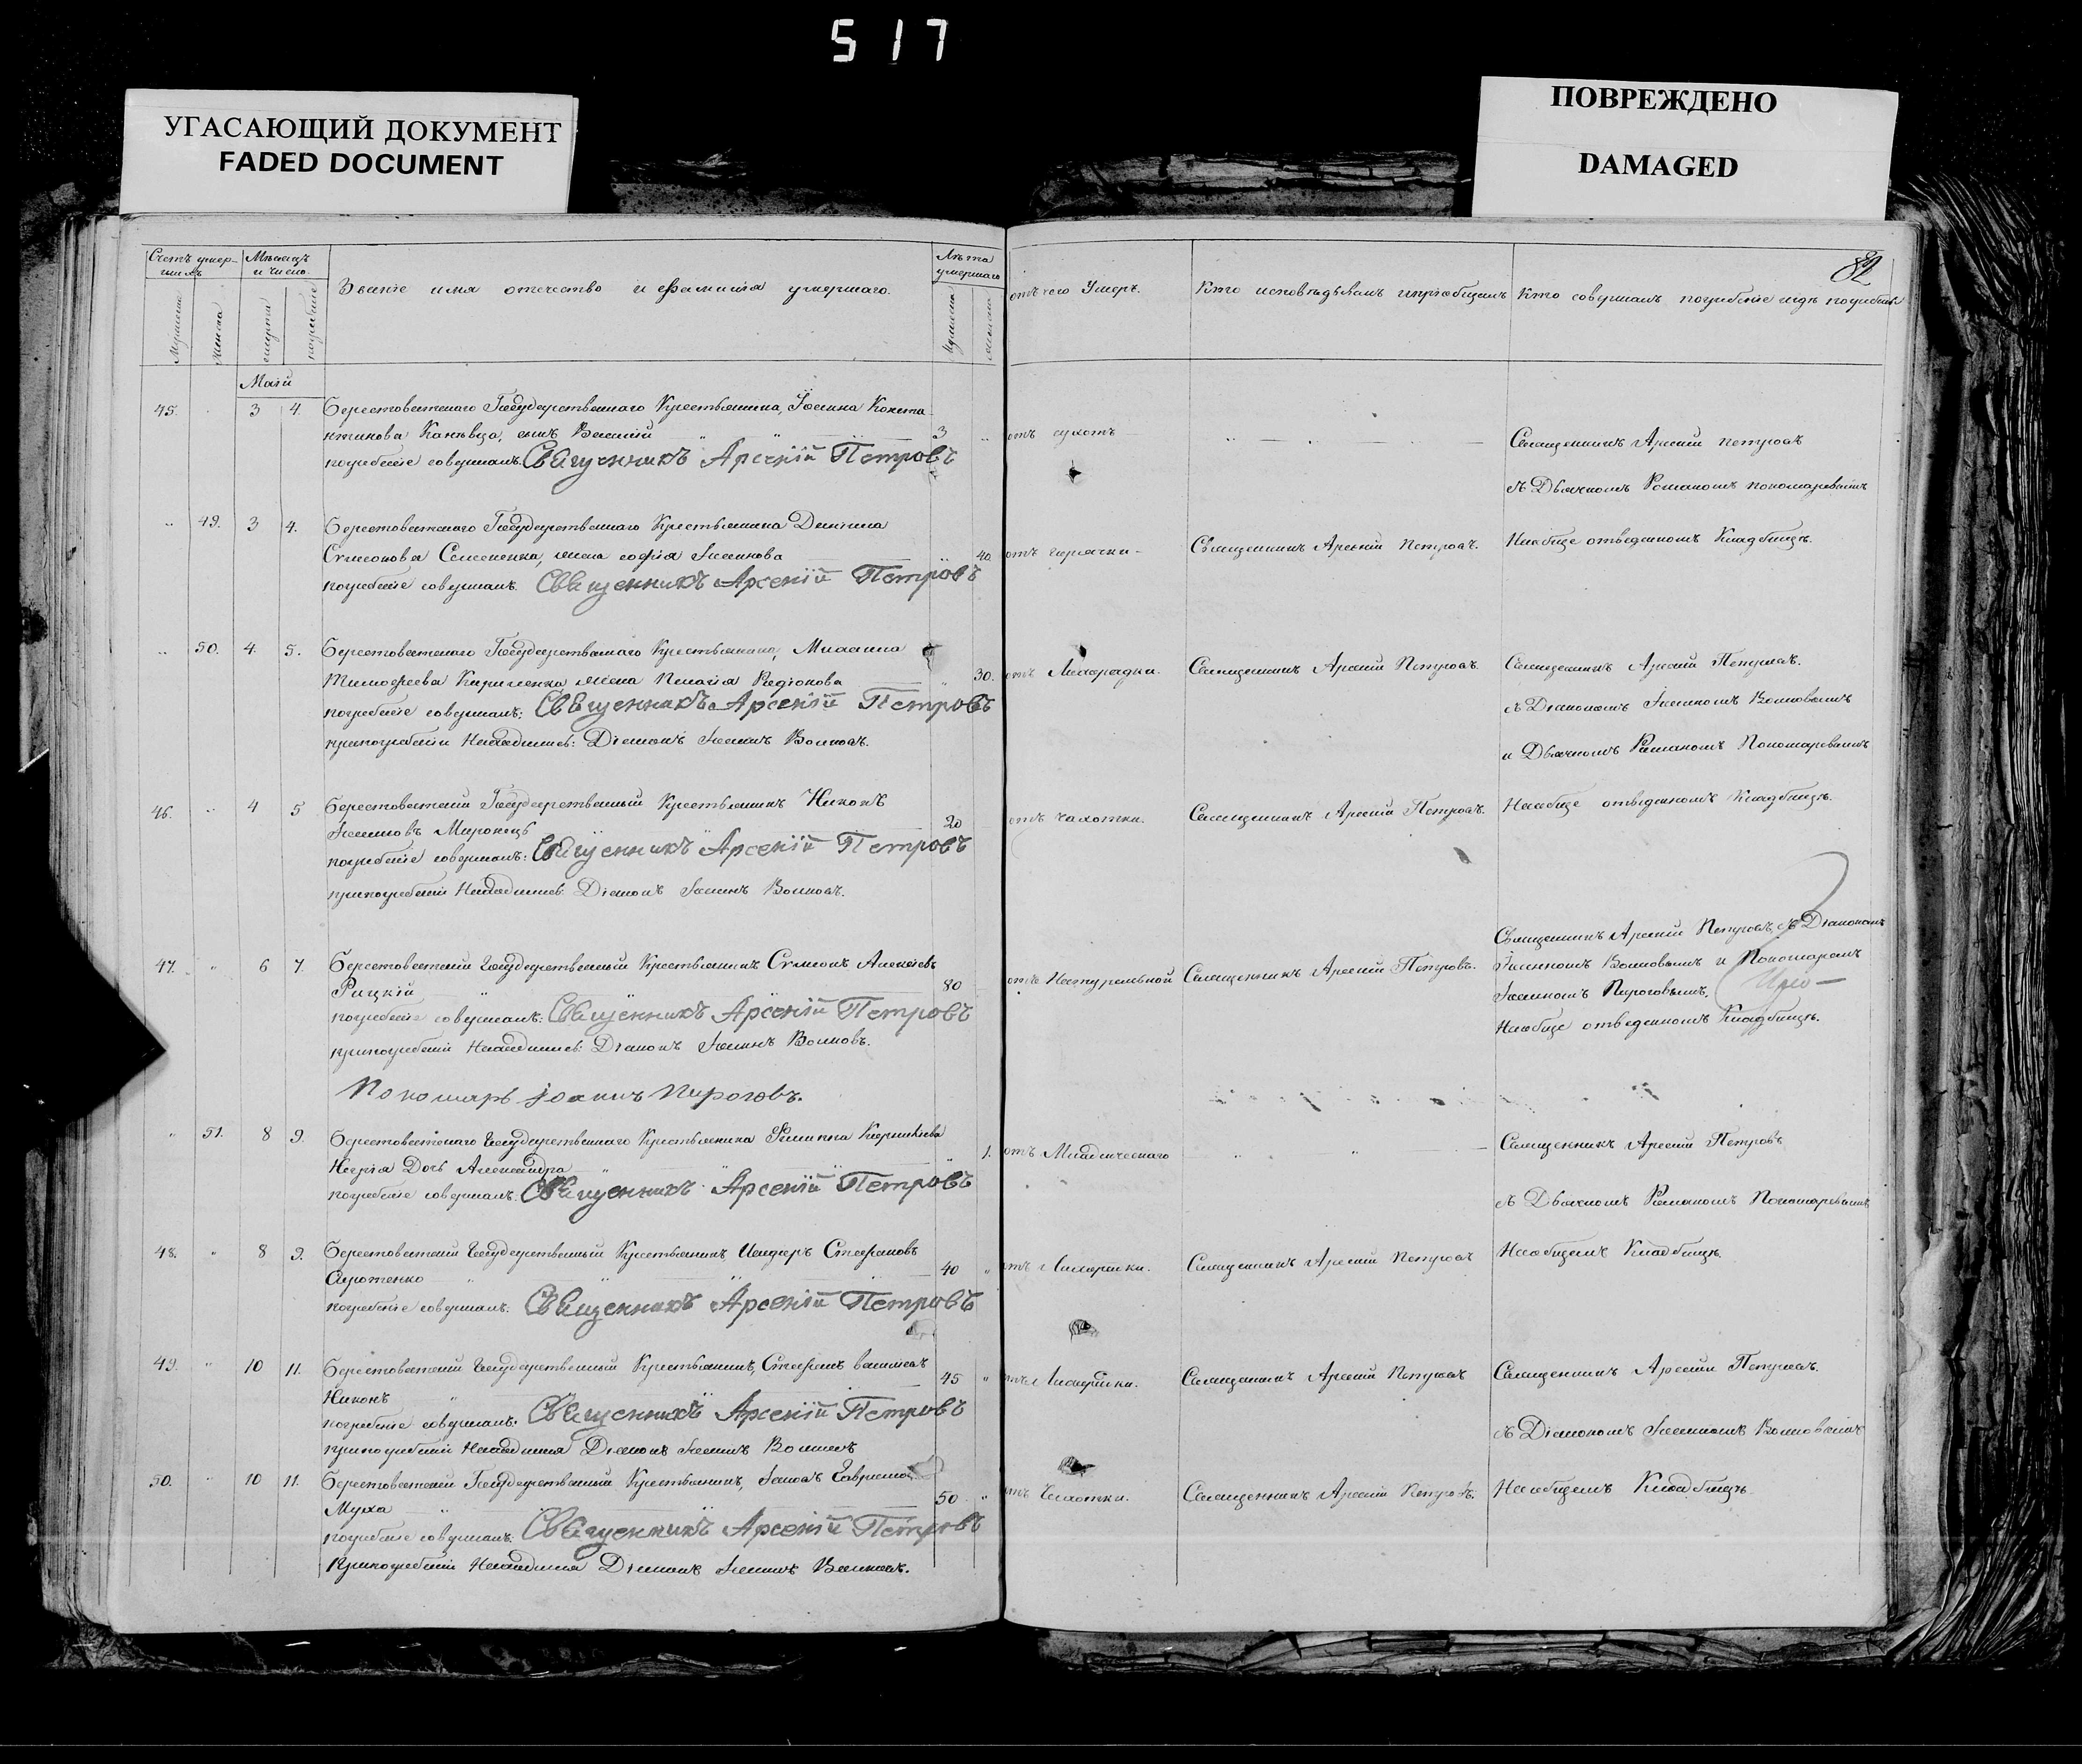 517
УГАСАЮЩИЙ ДОКУМЕНТ
FADED DOCUMENT
ПОВРЕЖДЕНО
DAMAGED
82
Счетъ умер-
шихъ
Мѣсяцъ
и число.
Званіе имя отечество и фамилія умершаго.
Лѣта
умершаго
отъ чего Умеръ.
Кто исповѣдывалъ и пріобщалъ
Кто совершалъ погребеніе и гдѣ погребены
Маій
45. 3 4. Берестовеньского Государственнаго Крестьянина, Іоанна Конста-
нтинова Канѣвца, сынъ Василій 3
отъ сухотъ
погребеніе совершалъ: Священникъ Арсеній Петровъ
Священникъ Арсеній Петровъ
съ Дьячкомъ Романомъ Пономаревымъ
49. 3 4. Берестовенскаго Государственнаго Крестьянина
Симеонова Семененка, жена Софія Іоаннова 40.
отъ горячки
Священникъ Арсеній Петровъ.
На обще отведенномъ Кладбищѣ.
погребеніе совершалъ. Священникъ Арсеній Петровъ
50. 4. 5. Берестовенскаго Государственнаго Крестьянина, Михаила
Тимофеева Кириленка жена Пелагія Родіонова 30.
отъ Лихорадки.
Священникъ Арсеній Петровъ.
Священникъ Арсеній Петровъ.
погребеніе совершалъ: Священникъ Арсеній Петровъ
съ Діакономъ Іоанномъ Волковымъ
при погребеніи Находились: Діаконъ Іоаннъ Волковъ.
и Дьячкомъ Романомъ Пономаревымъ
46. 4 5 Берестовенскій Государственный Крестьянинъ Никонъ
Іоанновъ Миронецъ 20
отъ чахотки.
Священникъ Арсеній Петровъ.
На обще отведенномъ Кладбищѣ.
погребеніе совершалъ: Священникъ Арсеній Петровъ
при погребеніи Находились: Діаконъ Іоаннъ Волковъ.
47. 6 7. Берестовенскій Государственный Крестьянинъ Симеонъ Алексіевъ
Рицкій 80
отъ Натуральной
Священникъ Арсеній Петровъ.
Священникъ Арсеній Петровъ, съ Діакономъ
Іоанномъ Волковымъ и Пономаремъ
Іоанномъ Пироговымъ,
На обще отведенномъ Кладбищѣ.
погребеніе совершалъ: Священникъ Арсеній Петровъ
при погребеніи Находились: Діаконъ Іоаннъ Волковъ.
Пономарь Іоаннъ Пироговъ.
51. 8 9. Берестовенскаго Государственнаго Крестьянина Филиппа Корниліева
Дочь Александра 1.
отъ Младенческаго
Священникъ Арсеній Петровъ
погребеніе совершалъ: Священникъ Арсеній Петровъ
съ Дьячкомъ Романомъ Пономаревымъ
48. 8 9. Берестовенскій Государственный Крестьянинъ, Стефановъ
40
Священникъ Арсеній Петровъ
На общемъ Кладбищѣ.
погребеніе совершалъ: Священникъ Арсеній Петровъ
49. 10 11. Берестовенскій Государственный Крестьянинъ, Стефанъ
Никонъ 45
Священникъ Арсеній Петровъ
Священникъ Арсеній Петровъ.
погребеніе совершалъ: Священникъ Арсеній Петровъ
съ Діакономъ Іоанномъ Волковымъ
при погребеніи Находился Діаконъ Іоаннъ Волковъ
50. 10 11. Берестовенскій Государственный Крестьянинъ,
Муха 50
отъ Чахотки.
Священникъ Арсеній Петровъ.
На общемъ Кладбищѣ.
погребеніе совершалъ: Священникъ Арсеній Петровъ
При погребеніи Находился Діаконъ Іоаннъ Волковъ.